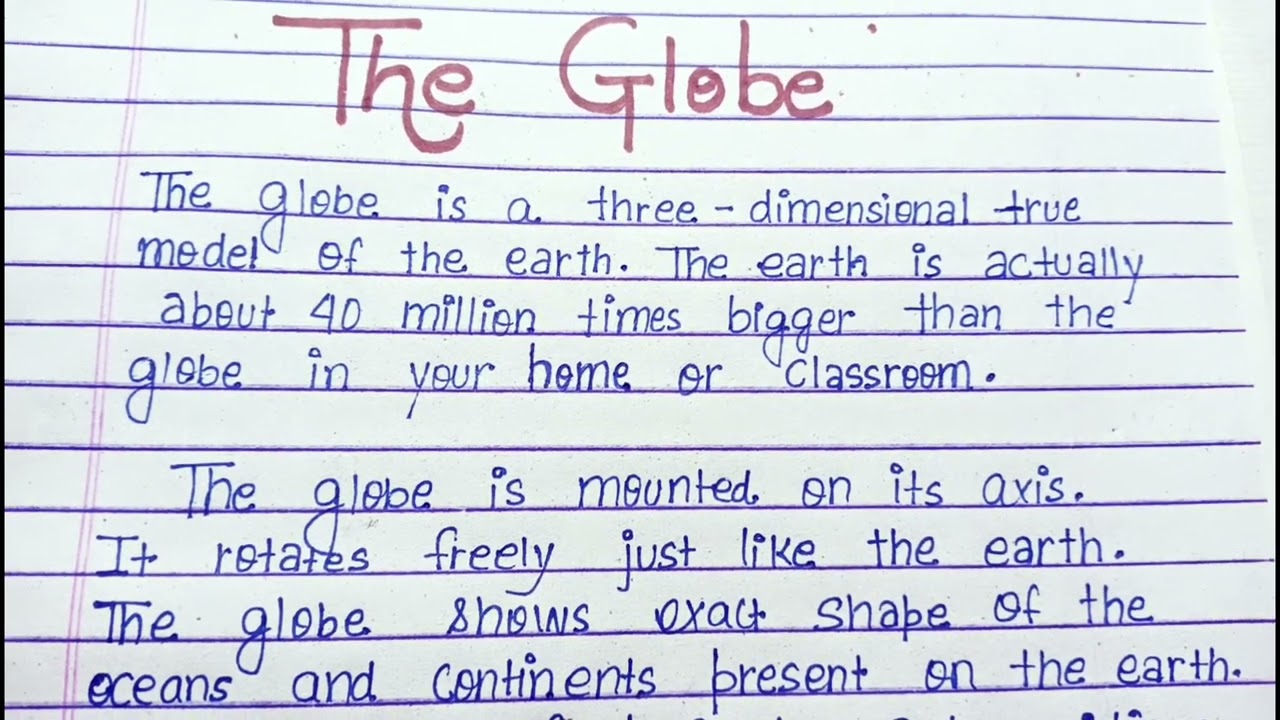 The Globe
The globe is a three-dimensional true
model of the earth. The earth is actually
about 40 million times bigger than the
globe in your home or classroom.
The globe is mounted on its axis.
It rotates freely just like the earth.
The globe shows exact shape of the
oceans and continents present on the earth.